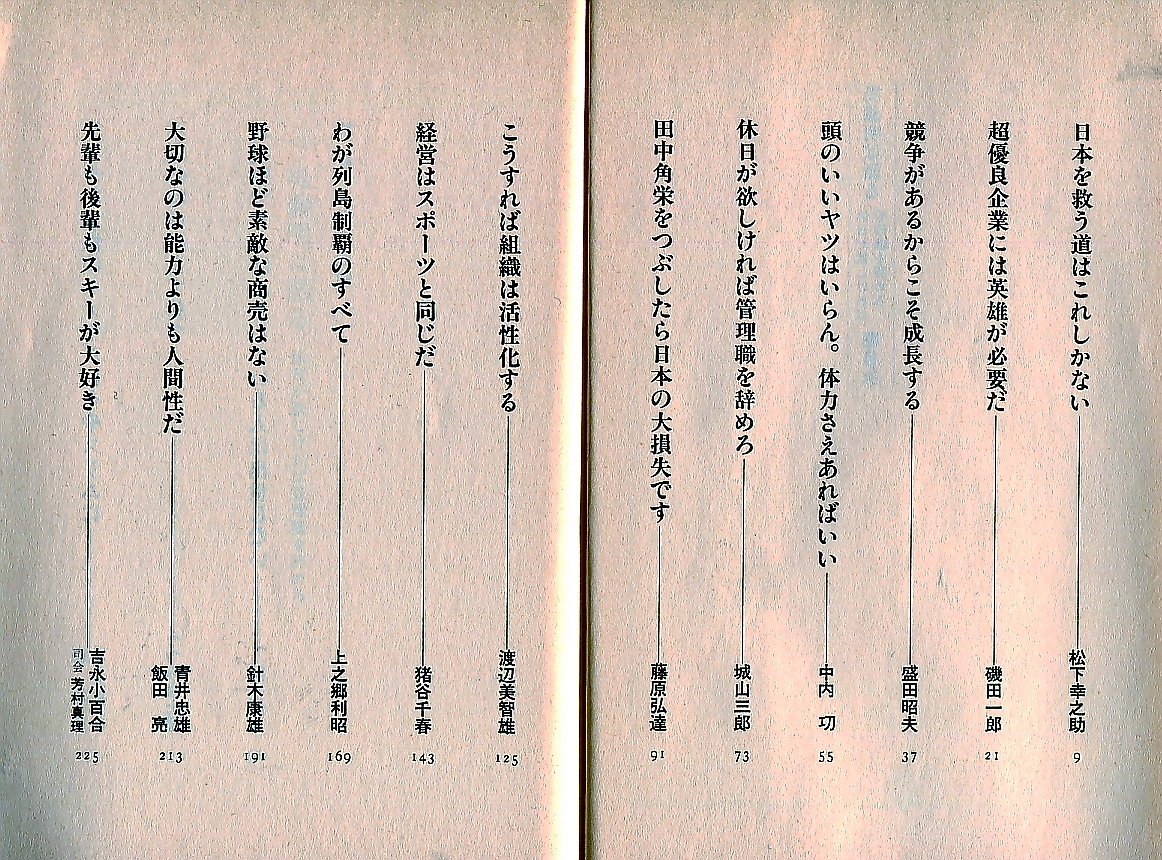 日本を救う道はこれしかない――松下幸之助 9
超優良企業には英雄が必要だ――磯田一郎 21
競争があるからこそ成長する――盛田昭夫 37
頭のいいヤツはいらん。体力さえあればいい――中内 㓛 55
休日が欲しければ管理職を辞めろ――城山三郎 73
田中角栄をつぶしたら日本の大損失です――藤原弘達 91
こうすれば組織は活性化する――渡辺美智雄 125
経営はスポーツと同じだ――猪谷千春 143
わが列島制覇のすべて――上之郷利昭 169
野球ほど素敵な商売はない――針木康雄 191
大切なのは能力よりも人間性だ――青井忠雄 飯田 亮 213
先輩も後輩もスキーが大好き――吉永小百合 司会 芳村真理 225